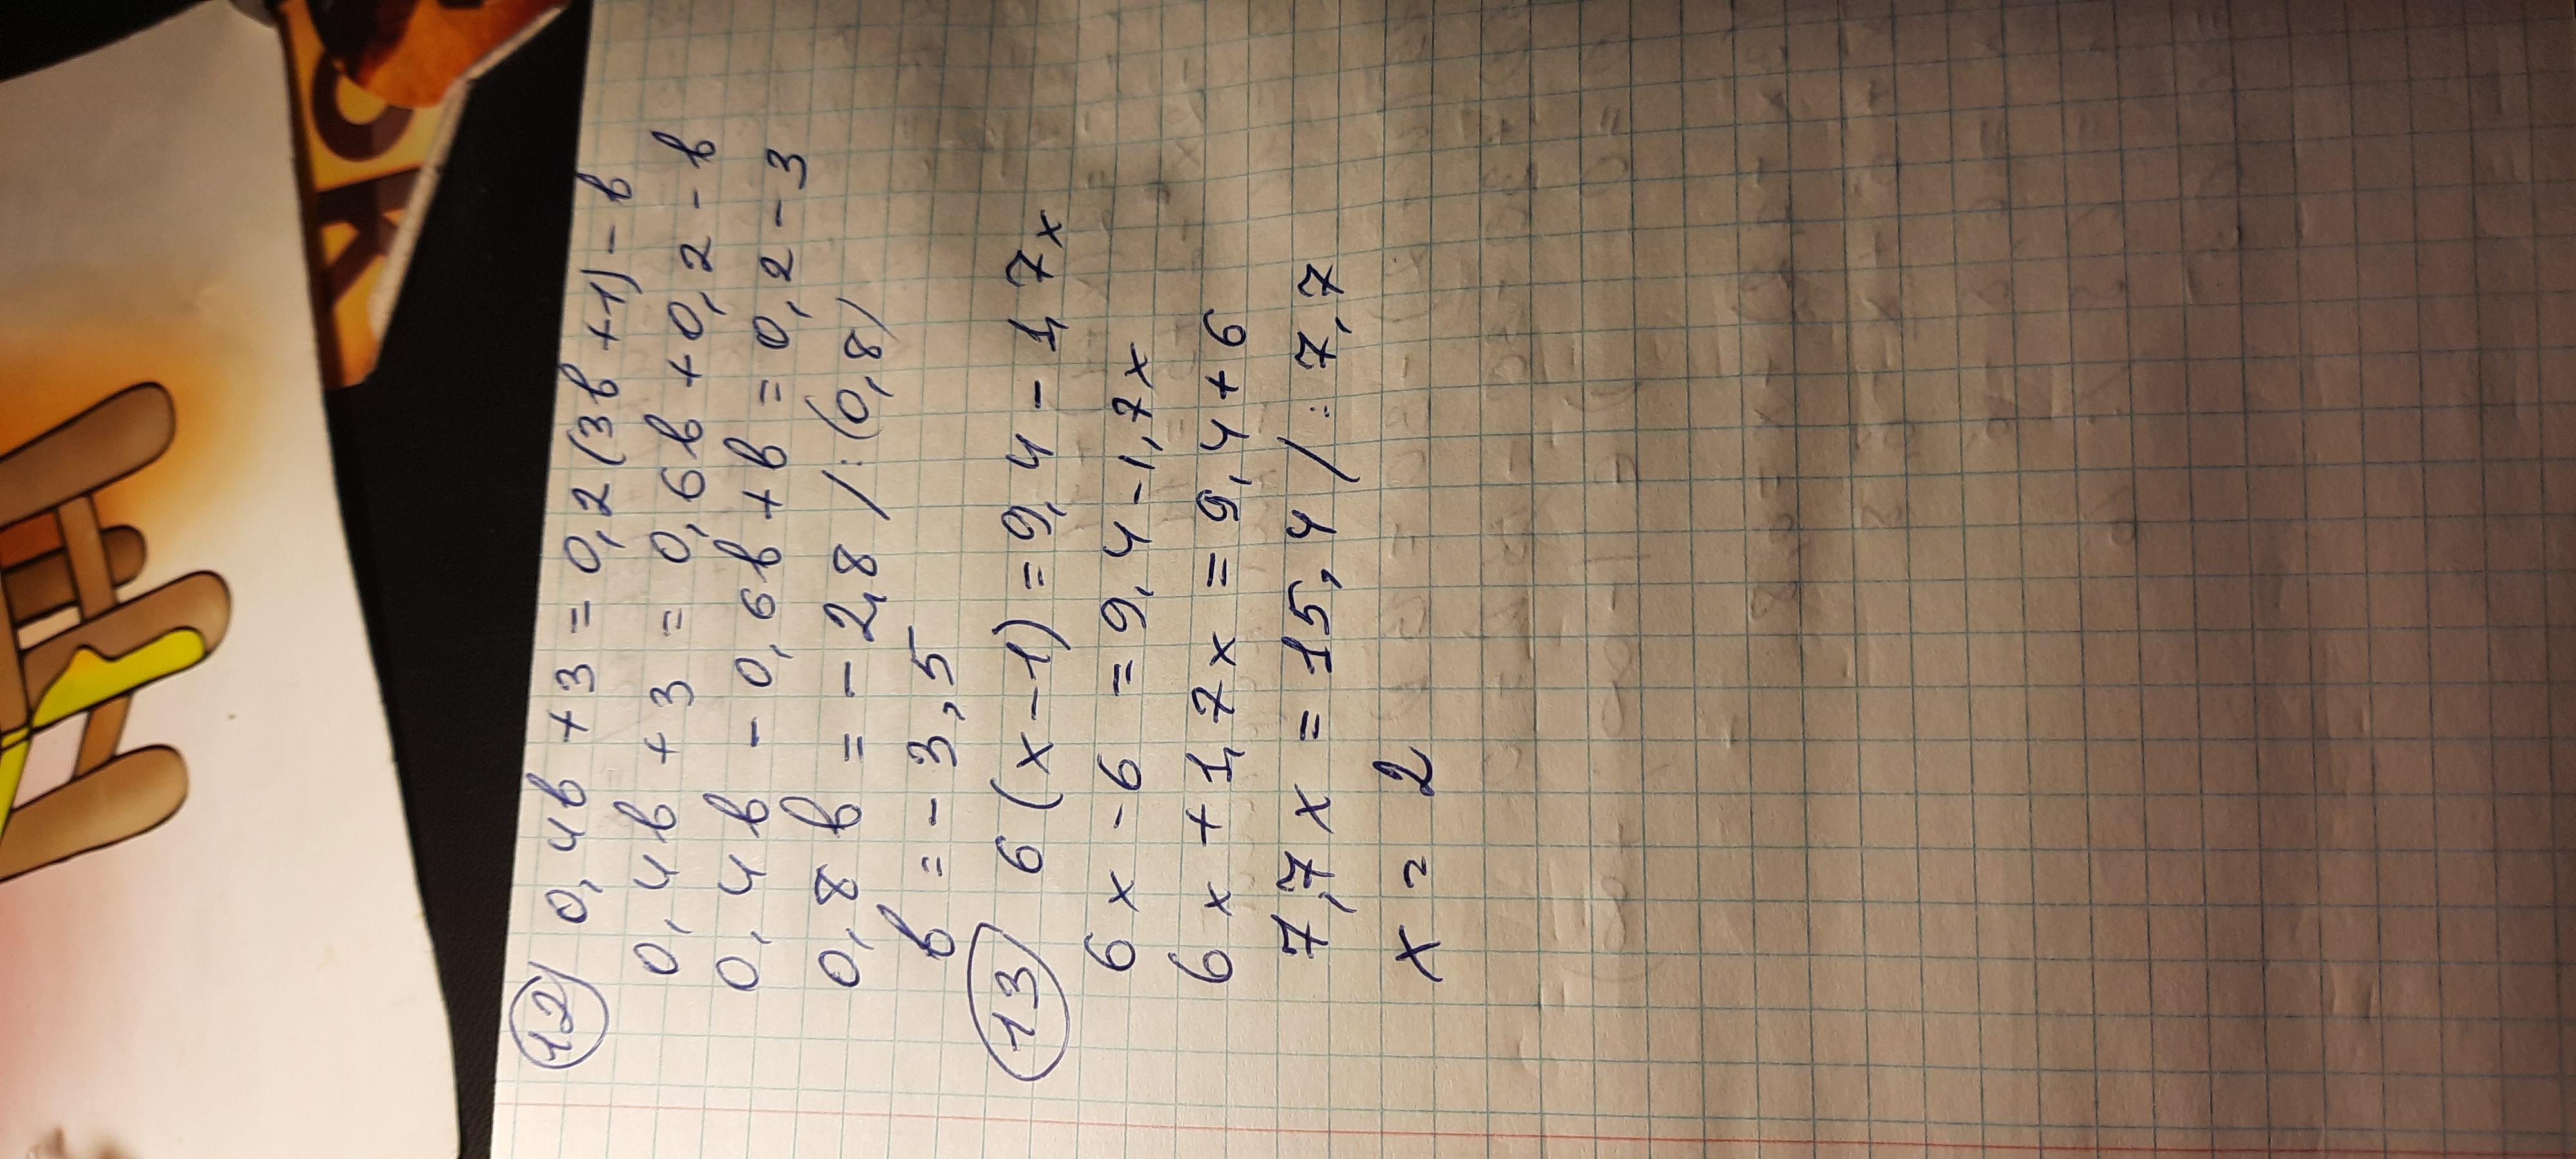 12) 0,4в + 3 = 0,2(3в + 1) - в
0,4в + 3 = 0,6в + 0,2 - в
0,4в - 0,6в + в = 0,2 - 3
0,8в = - 2,8 / : (0,8)
в = - 3,5
13 6(x - 1) = 9,4 - 1,7x
6x - 6 = 9,4 - 1,7x
6x + 1,7x = 9,4 + 6
7,7x = 15,4 / : 7,7
x = 2